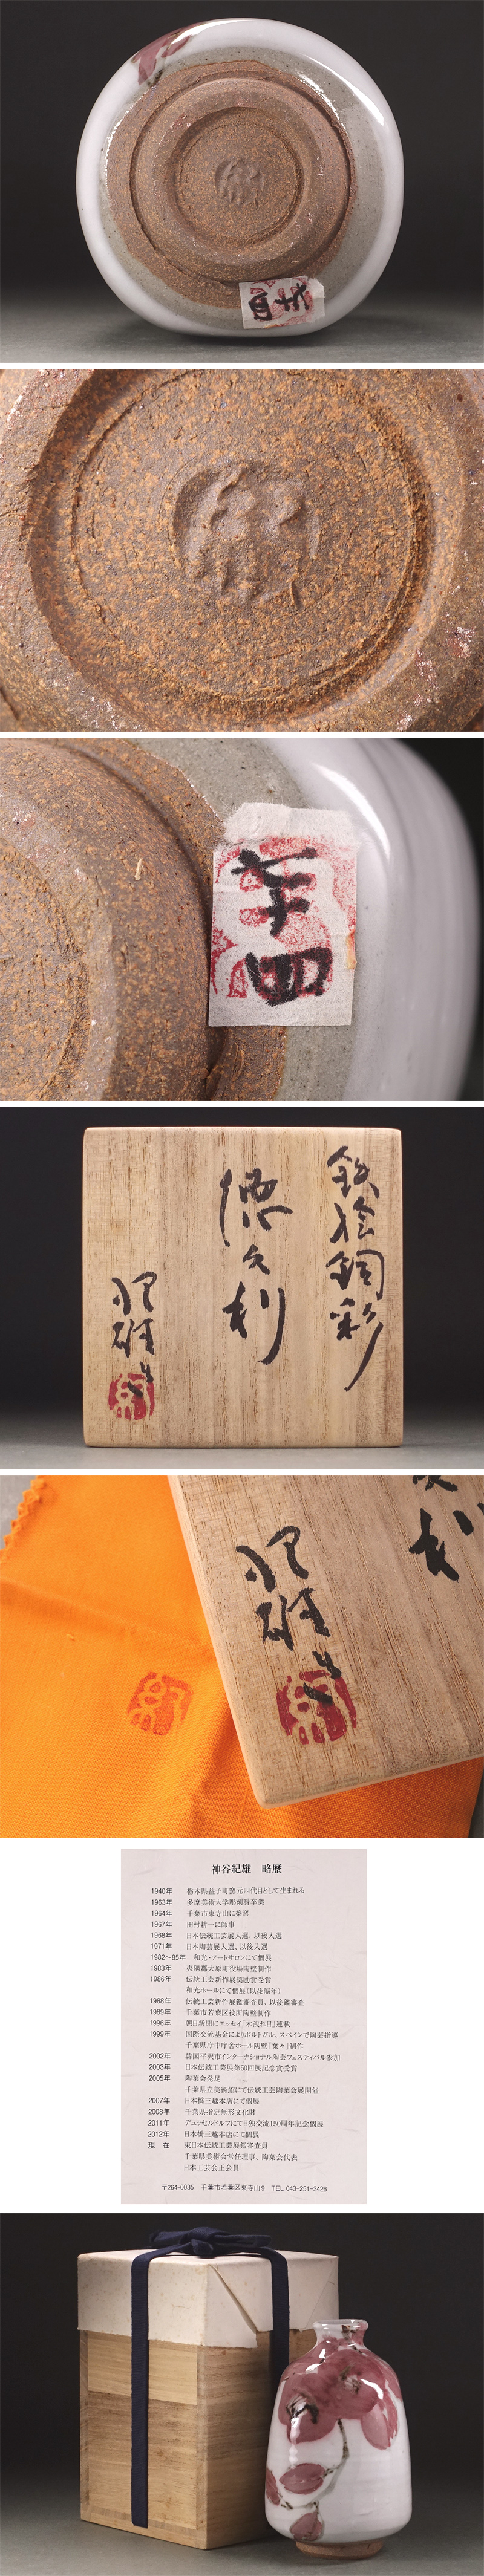 鉄絵銅彩
徳久利
紀雄
紀
紀雄
紀
紀
神谷紀雄 略歴
1940年 栃木県益子町窯元四代目として生まれる
1963年 多摩美術大学彫刻科卒業
1964年 千葉市東寺山に築窯
1967年 田村耕一に師事
1968年 日本伝統工芸展入選、以後入選
1971年 日本陶芸展入選、以後入選
1982～85年 和光・アートサロンにて個展
1983年 夷隅郡大原町役場陶壁制作
1986年 伝統工芸新作展奨励賞受賞
和光ホールにて個展(以後隔年)
1988年 伝統工芸新作展鑑審査員、以後鑑審査
1989年 千葉市若葉区役所陶壁制作
1996年 朝日新聞にエッセイ「木洩れ日」連載
1999年 国際交流基金によりポルトガル、スペインで陶芸指導
千葉県庁中庁舎ホール陶壁「葉々」制作
2002年 韓国平沢市インターナショナル陶芸フェスティバル参加
2003年 日本伝統工芸展第50回展記念賞受賞
2005年 陶葉会発足
千葉県立美術館にて伝統工芸陶葉会展開催
2007年 日本橋三越本店にて個展
2008年 千葉県指定無形文化財
2011年 デュッセルドルフにて日独交流150周年記念個展
2012年 日本橋三越本店にて個展
現 在 東日本伝統工芸展鑑審査員
千葉県美術会常任理事、陶葉会代表
日本工芸会正会員
〒264-0035 千葉市若葉区東寺山9 TEL 043-251-3426